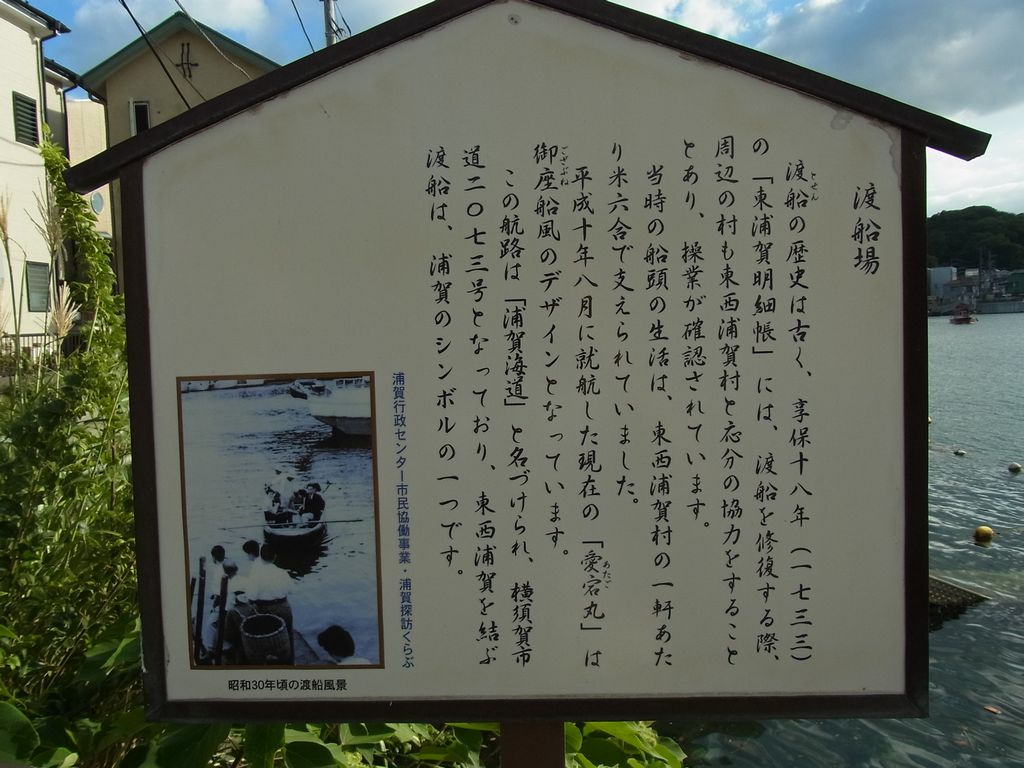 渡船場
渡船の歴史は古く、享保十八年(一七三三)
とせん
の「東浦賀明細帳」には、渡船を修復する際、
周辺の村も東西浦賀村と応分の協力をすること
とあり、操業が確認されています。
当時の船頭の生活は、東西浦賀村の一軒あた
り米六合で支えられていました。
平成十年八月に就航した現在の「愛宕丸」は
あたご
御座船風のデザインとなっています。
ござぶね
この航路は「浦賀海道」と名づけられ、横須賀市
道二〇七三号となっており、東西浦賀を結ぶ
渡船は、浦賀のシンボルの一つです。
浦賀行政センター市民協働事業・浦賀探訪くらぶ
昭和30年頃の渡船風景